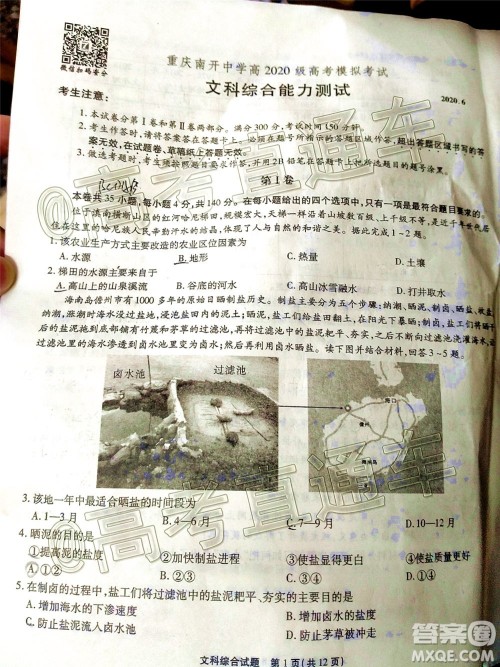 微信扫码查分
重庆南开中学高2020级高考模拟考试
文科综合能力测试
2020.6
考生注意：
1.本试卷分第Ⅰ卷和第Ⅱ卷两部分。满分300分，考试时间150分钟。
2.考生作答时，请将答案答在答题卡上。必须在题号所指示的答题区域作答，超出答题区域书写的答
案无效，在试题卷、草稿纸上答题无效。
3.做选考题时，考生按照题目要求作答，并用2B铅笔在答题卡上把所选题目的题号涂黑。
第Ⅰ卷
本卷共35小题，每小题4分，共140分。在每小题给出的四个选项中，只有一项是最符合题目要求的。
位于滇南横断山区的红河哈尼梯田，规模宏大，天梯一样沿着山坡数百级，上千级不等，是近千年世居
住在此的哈尼族人民辛勤汗水的结晶，体现了人与自然的和谐之美。据此完成1～2题。
1.该农业生产方式主要改造的农业区位因素为
A.水源 B.地形 C.热量 D.土壤
2.梯田的水源主要来自于
A.高山上的山泉溪流 B.谷底的河水 C.高山冰雪融水 D.打井取水
海南岛儋州市有1000多年的原始日晒制盐历史。制盐主要分为五个步骤：纳潮、晒泥、制卤、晒盐、收盐。
纳潮，涨潮时海水没过盐池地，浸泡盐田内的泥土；晒泥，盐工们给盐田翻土，在阳光下暴晒；制卤，盐工们将晒
干后的盐泥搬到底部铺有竹篾和茅草的过滤池，将过滤池里的盐泥耙平、夯实，之后不断向过滤池浇灌海水，
过滤池里的海水渗透到卤水池里变为卤水；然后再利用卤水晒盐。读下图并结合材料，回答3～5题。
卤水池 过滤池
海口
儋州
海南岛
3.该地一年中最适合晒盐的时间段为
A.1—3月 B.4—6月 C.7—9月 D.10—12月
4.晒泥的目的是
①提高泥的盐度 ②加快制盐进程 ③使盐显得更白 ④使盐质量更好
A.①② B.②③ C.③④ D.①④
5.在制卤的过程中，盐工们将过滤池中的盐泥耙平、夯实的主要目的是
A.增加海水的下渗速度 B.增加卤水的盐度
C.防止盐泥流入卤水池 D.防止茅草被冲走
文科综合试题 第1页(共12页)
@高考直通车
@高考直通车
答案圈
MXQE.COM